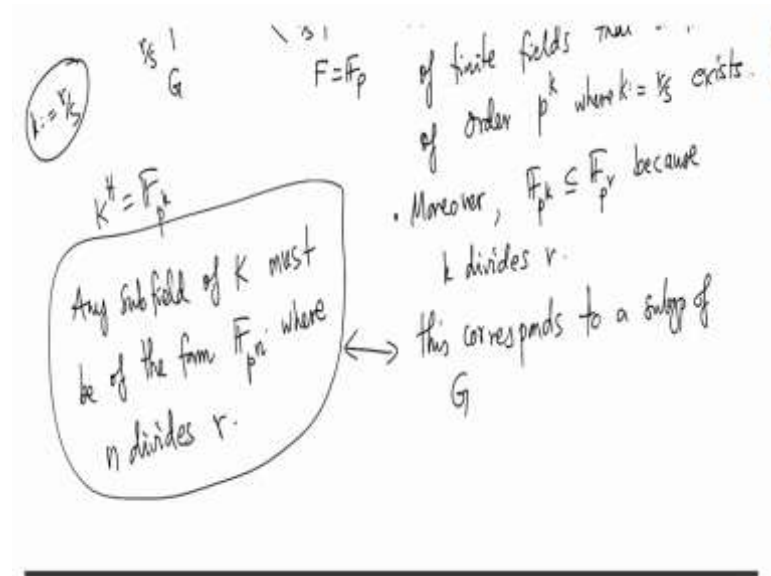 r/s |
G
k:=r/s
F=𝔽_p
of finite fields
of order p^k where k:=r/s exists.
K^H = 𝔽_{p^k}
• Moreover, 𝔽_{p^k} ⊆ 𝔽_{p^r} because
k divides r.
Any subfield of K must
be of the form 𝔽_{p^n} where
n divides r.
↔ this corresponds to a subgp of
G